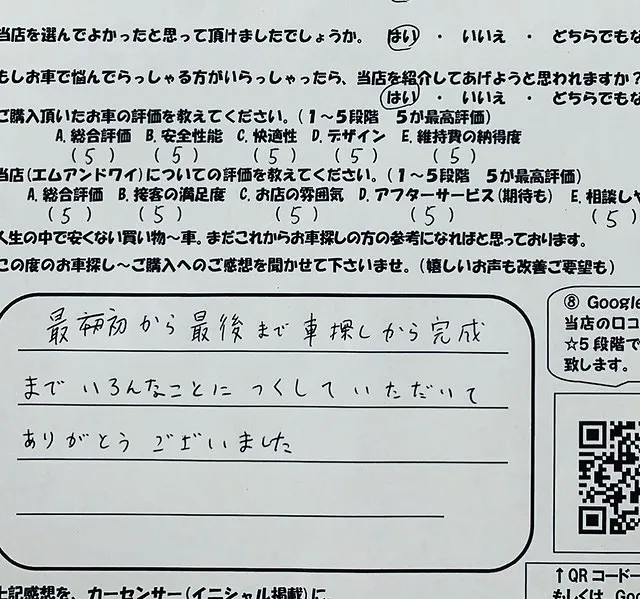 当店を選んでよかったと思って頂けましたでしょうか。 はい ・ いいえ ・ どちらでもな
もしお車で悩んでらっしゃる方がいらっしゃったら、当店を紹介してあげようと思われますか?
はい ・ いいえ ・ どちらでもな
ご購入頂いたお車の評価を教えてください。(1～5段階 5が最高評価)
A.総合評価 B.安全性能 C.快適性 D.デザイン E.維持費の納得度
(5) (5) (5) (5) (5)
当店(エムアンドワイ)についての評価を教えてください。(1～5段階 5が最高評価)
A.総合評価 B.接客の満足度 C.お店の雰囲気 D.アフターサービス(期待も) E.相談しや
(5) (5) (5) (5) (5)
人生の中で安くない買い物～車。まだこれからお車探しの方の参考になればと思っております。
この度のお車探し～ご購入へのご感想を聞かせて下さいませ。(嬉しいお声も改善ご要望も)
最初から最後まで車探しから完成
まで いろんなことに つくして いただいて
ありがとう ございました
⑧ Google
当店の口コ
☆5段階で
致します。
上記感想を、カーセンサー(イニシャル掲載)に
↑QRコード
もしくは、Goo